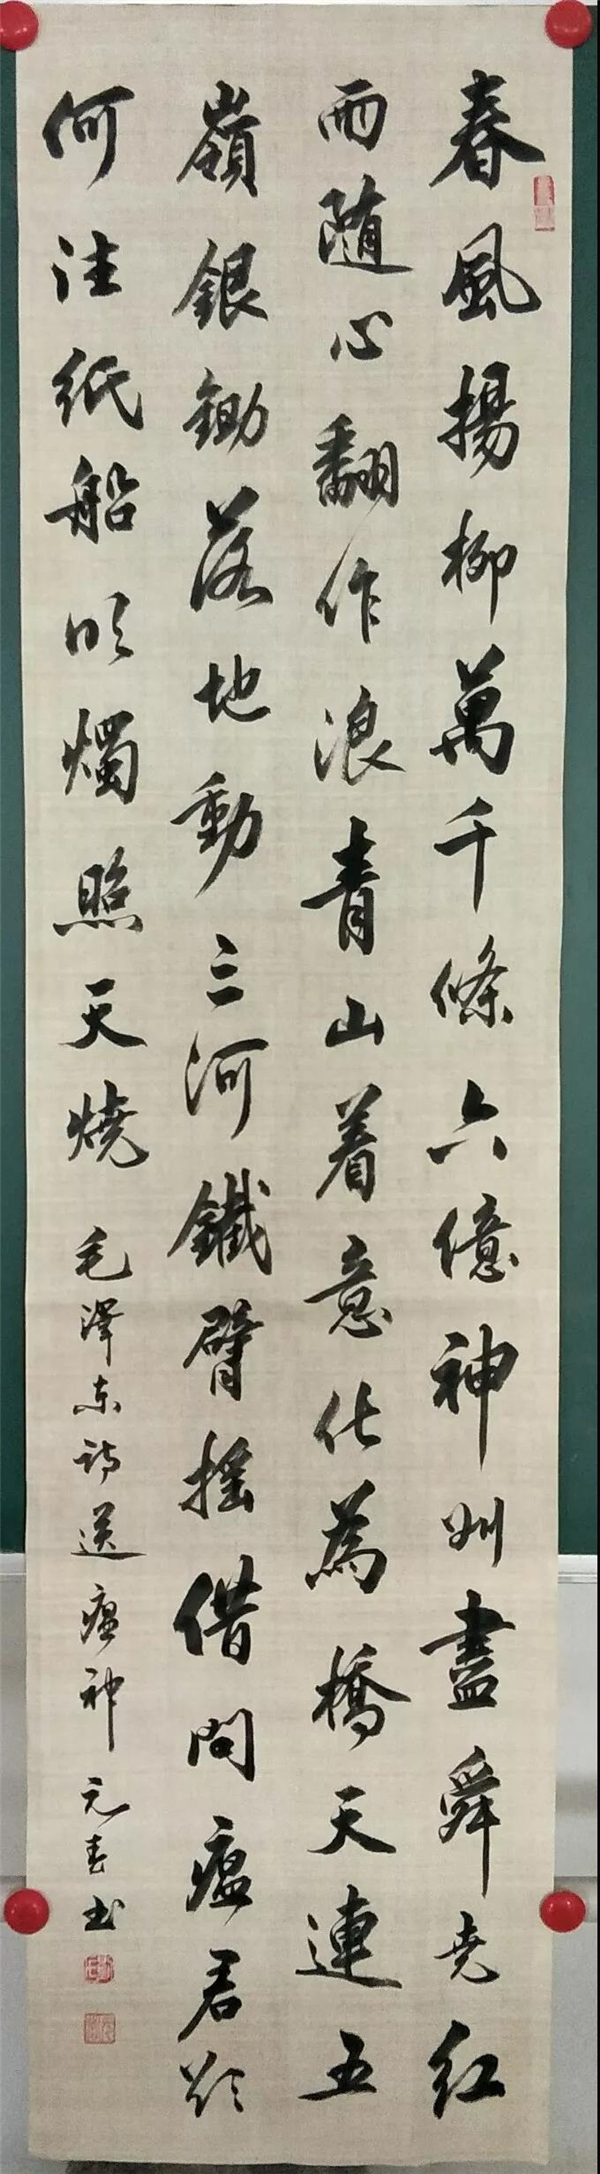 春風揚柳萬千條六億神州盡舜堯紅
雨随心翻作浪青山着意化為橋天連五
嶺銀鋤落地動三河鐵臂摇借問瘟君欲
何往紙船明燭照天燒 毛澤东詩送瘟神 元春书